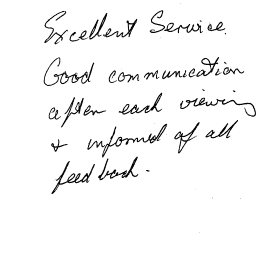 Excellent Service.
Good communication
after each viewing
& informed of all
feedback.